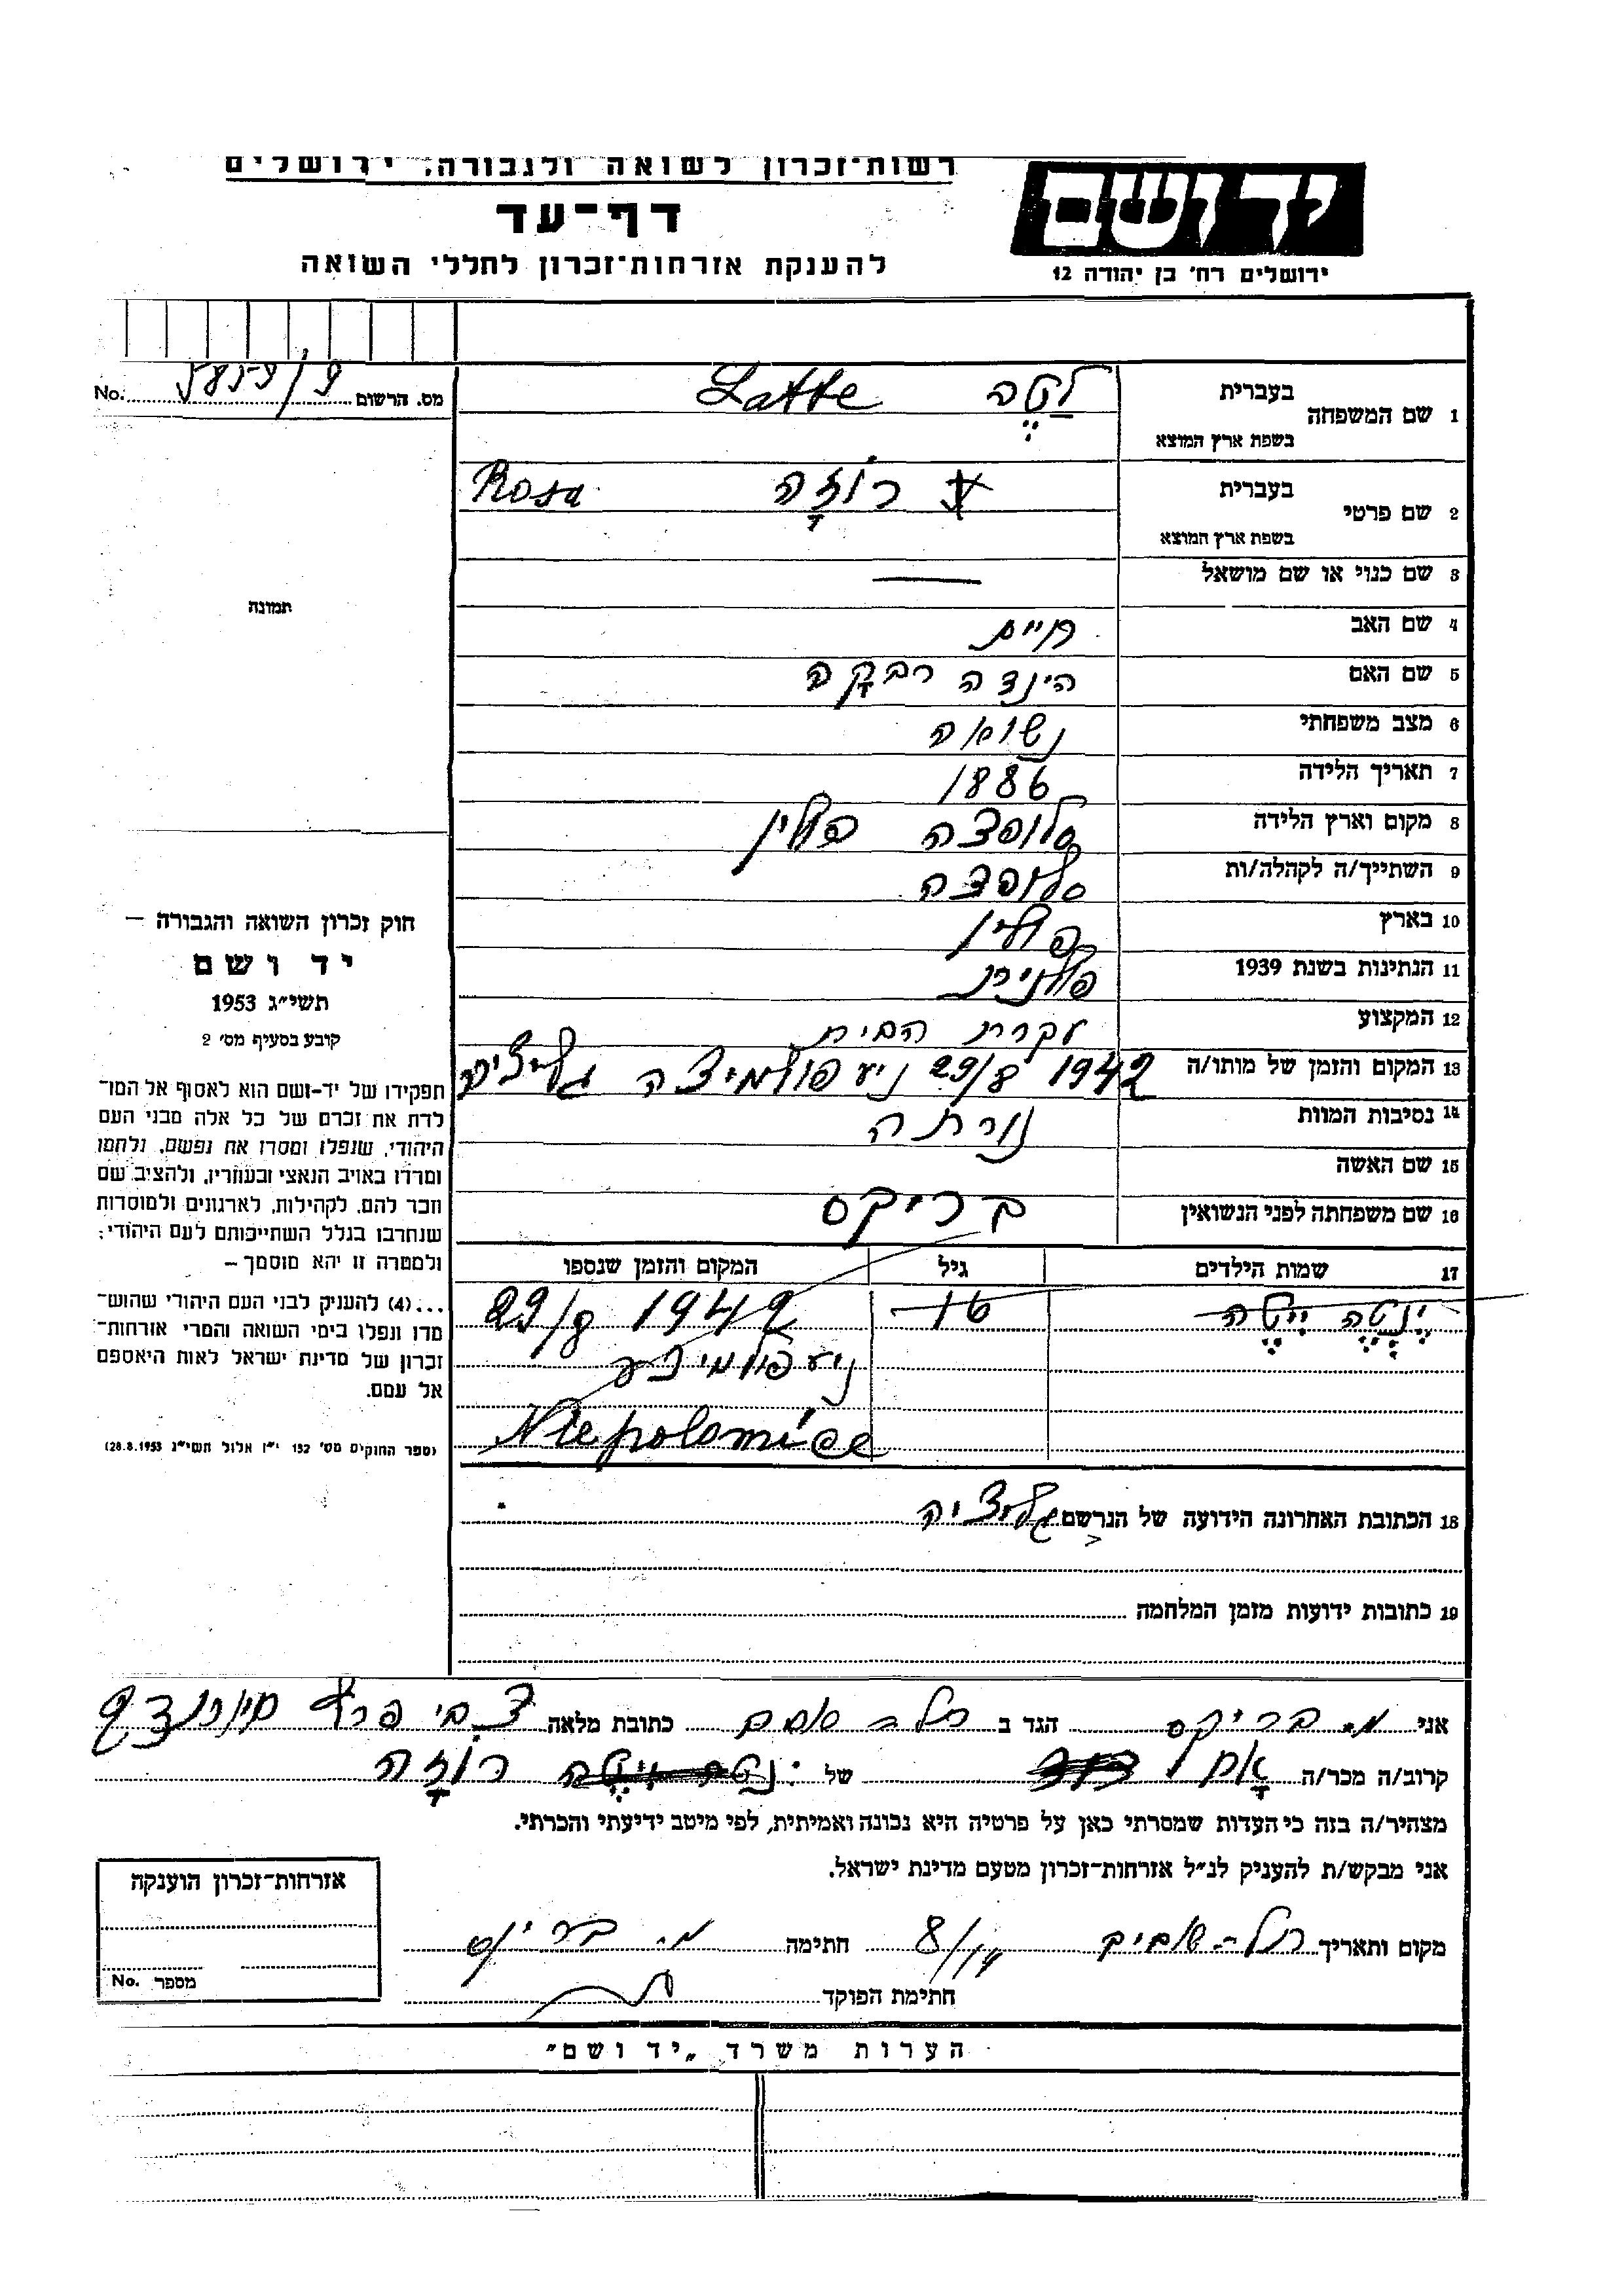 רשות־זכרון לשואה ולגבורה, ירושלים
יד ושם
דף־עד
להענקת אזרחות־זכרון לחללי השואה
ירושלים רח' בן יהודה 12
מס. הרשום No.
1 שם המשפחה בעברית לטה Latte
בשפת ארץ המוצא
2 שם פרטי בעברית רוזה Rosa
בשפת ארץ המוצא
3 שם כנוי או שם מושאל —
4 שם האב חיים
5 שם האם הינדה רבקה
6 מצב משפחתי נשואה
7 תאריך הלידה 1886
8 מקום וארץ הלידה סלופצה פולין
9 השתייך/ה לקהלה/ות סלופצה
10 בארץ פולין
11 הנתינות בשנת 1939 פולנית
12 המקצוע עקרת הבית
13 המקום והזמן של מותו/ה 1942 29/8 ניעפולמיצה גליציה
14 נסיבות המוות נורתה
15 שם האשה
16 שם משפחתה לפני הנשואין בריקס
17 שמות הילדים גיל המקום והזמן שנספו
יֶנטה 16 29/8 1942
ניעפולמיצע
Niepolomice
18 הכתובת האחרונה הידועה של הנרשם גליציה
19 כתובות ידועות מזמן המלחמה
תמונה
חוק זכרון השואה והגבורה —
יד ושם
תשי״ג 1953
קובע בסעיף מס׳ 2
תפקידו של יד־ושם הוא לאסוף אל המו־
לדת את זכרם של כל אלה מבני העם
היהודי, שנפלו ומסרו את נפשם, נלחמו
ומרדו באויב הנאצי ובעוזריו, ולהציב שם
וזכר להם, לקהילות, לארגונים ולמוסדות
שנחרבו בגלל השתייכותם לעם היהודי;
ולמטרה זו יהא מוסמך —
...(4) להענק לבני העם היהודי שהוש־
מדו ונפלו בימי השואה והמרי אזרחות־
זכרון של מדינת ישראל לאות היאספם
אל עמם.
(ספר החוקים מס׳ 132 י״ז אלול תשי״ג 28.8.1953)
אני מ. בריקס הגר ב תל־אביב כתובת מלאה צבי פרץ
קרוב/ה מכר/ה אח של רוזה
מצהיר/ה בזה כי העדות שמסרתי כאן על פרטיה היא נכונה ואמיתית, לפי מיטב ידיעתי והכרתי.
אני מבקש/ת להעניק לנ״ל אזרחות־זכרון מטעם מדינת ישראל.
מקום ותאריך תל־אביב חתימה מ. בריקס
חתימת הפוקד
אזרחות־זכרון הוענקה
מספר No.
הערות משרד „יד ושם״